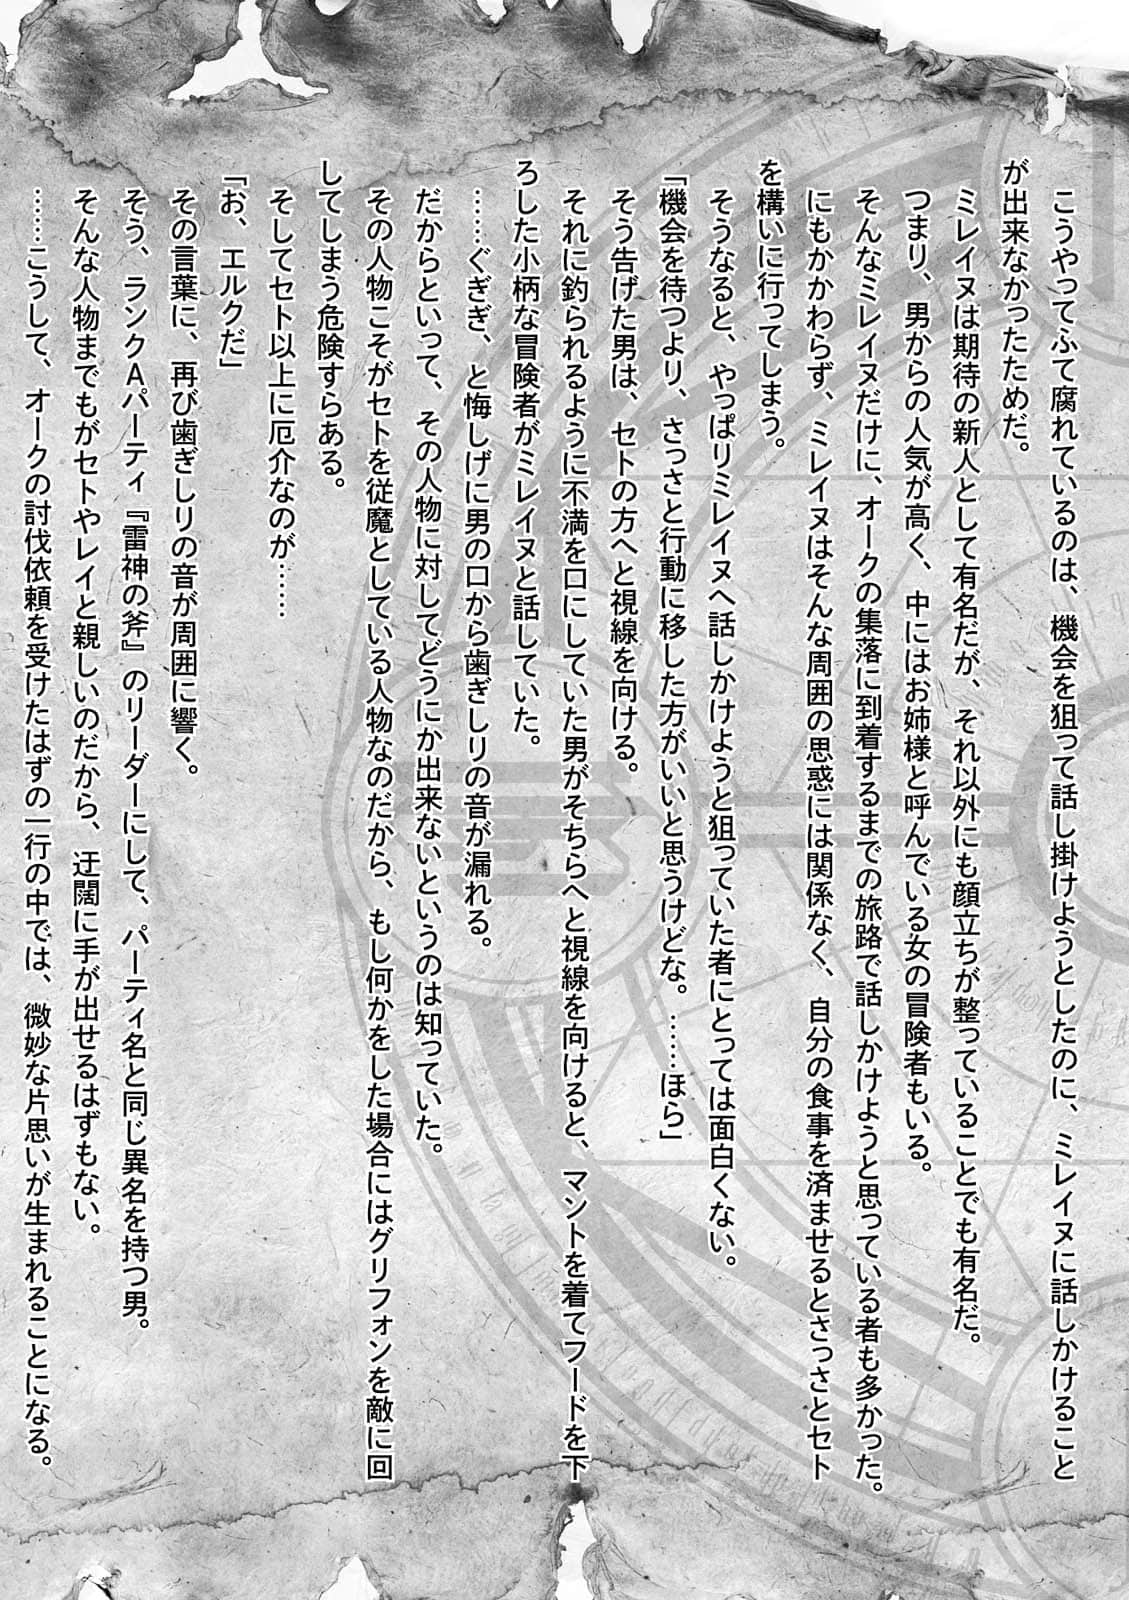 こうやってふて腐れているのは、機会を狙って話し掛けようとしたのに、ミレイヌに話しかけること
が出来なかったためだ。
ミレイヌは期待の新人として有名だが、それ以外にも顔立ちが整っていることでも有名だ。
つまり、男からの人気が高く、中にはお姉様と呼んでいる女の冒険者もいる。
そんなミレイヌだけに、オークの集落に到着するまでの旅路で話しかけようと思っている者も多かった。
にもかかわらず、ミレイヌはそんな周囲の思惑には関係なく、自分の食事を済ませるとさっさとセト
を構いに行ってしまう。
そうなると、やっぱりミレイヌへ話しかけようと狙っていた者にとっては面白くない。
「機会を待つより、さっさと行動に移した方がいいと思うけどな。……ほら」
そう告げた男は、セトの方へと視線を向ける。
それに釣られるように不満を口にしていた男がそちらへと視線を向けると、マントを着てフードを下
ろした小柄な冒険者がミレイヌと話していた。
……ぐぎぎ、と悔しげに男の口から歯ぎしりの音が漏れる。
だからといって、その人物に対してどうにか出来ないというのは知っていた。
その人物こそがセトを従魔としている人物なのだから、もし何かをした場合にはグリフォンを敵に回
してしまう危険すらある。
そしてセト以上に厄介なのが……
「お、エルクだ」
その言葉に、再び歯ぎしりの音が周囲に響く。
そう、ランクAパーティ『雷神の斧』のリーダーにして、パーティ名と同じ異名を持つ男。
そんな人物までもがセトやレイと親しいのだから、迂闊に手が出せるはずもない。
……こうして、オークの討伐依頼を受けたはずの一行の中では、微妙な片思いが生まれることになる。